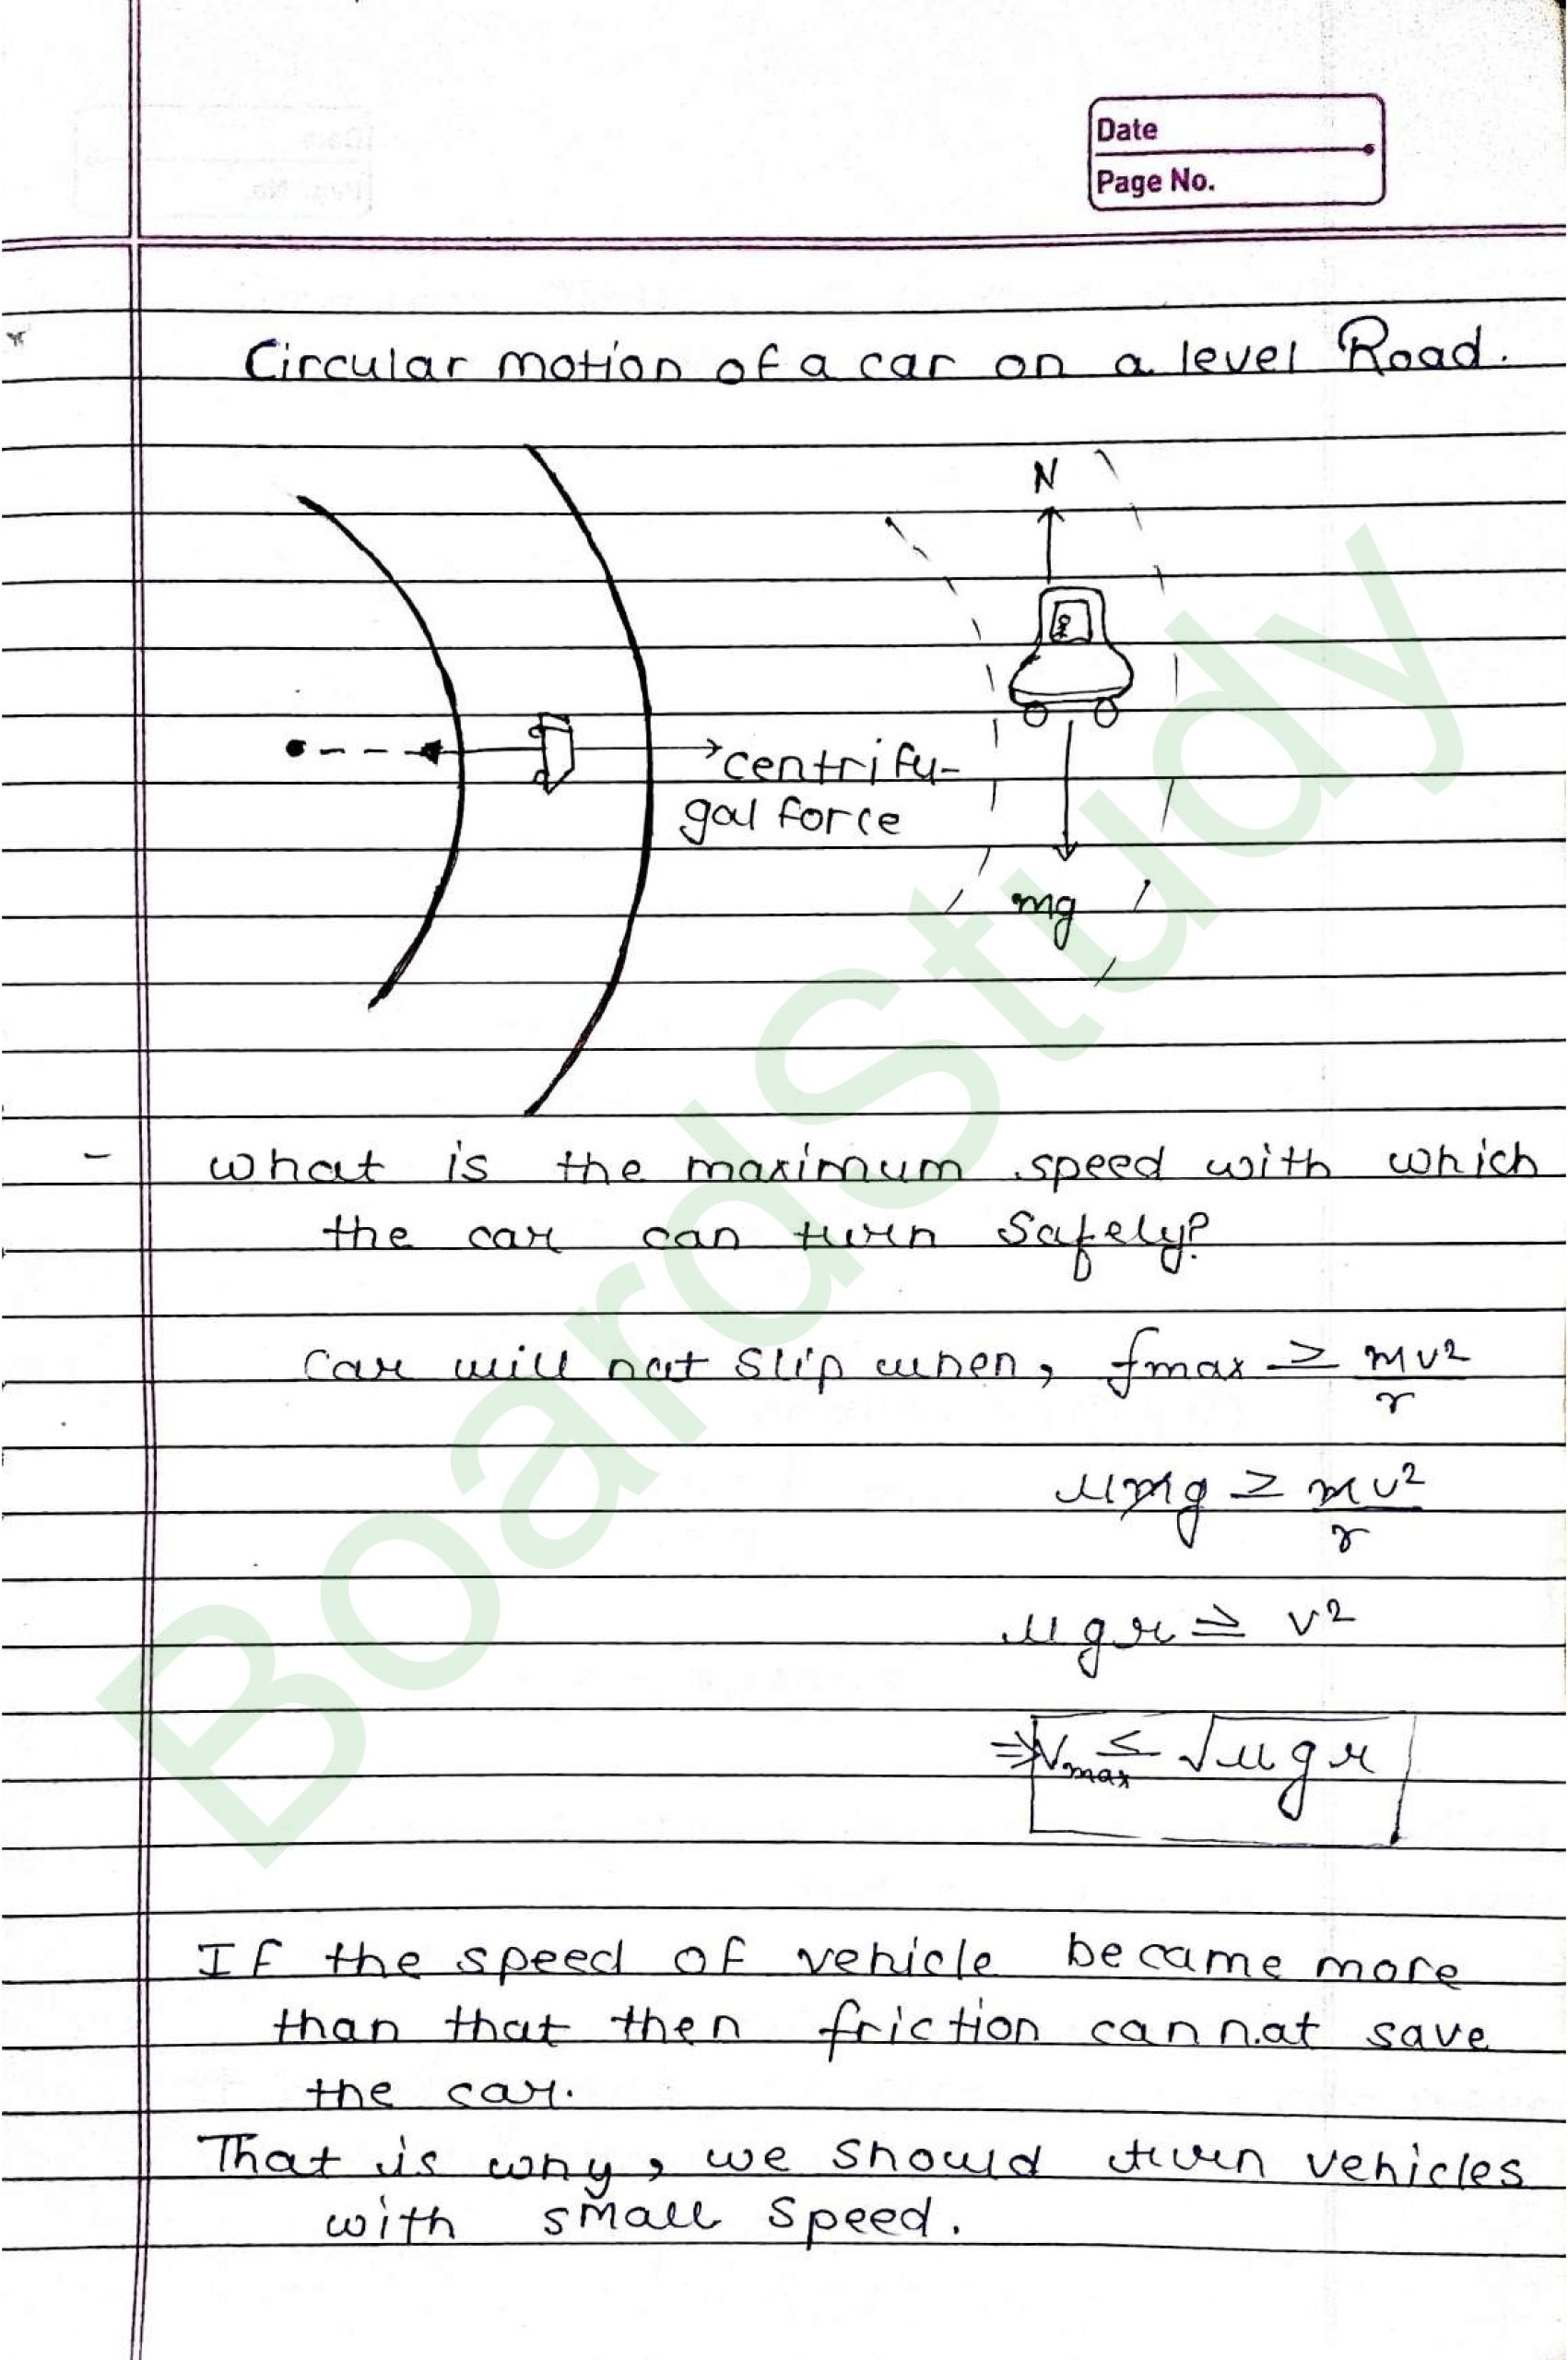 Date
Page No.
Circular motion of a car on a level Road.
N
centrifu-
gal force
mg
- what is the maximum speed with which
the car can turn safely?
car will not slip when, fmax ≥ mv²/r
μmg ≥ mv²/r
μgr ≥ v²
⇒ Vmax ≤ √μgr
If the speed of vehicle became more
than that then friction cannot save
the car.
That is why, we should turn vehicles
with small speed.
BoardStudy